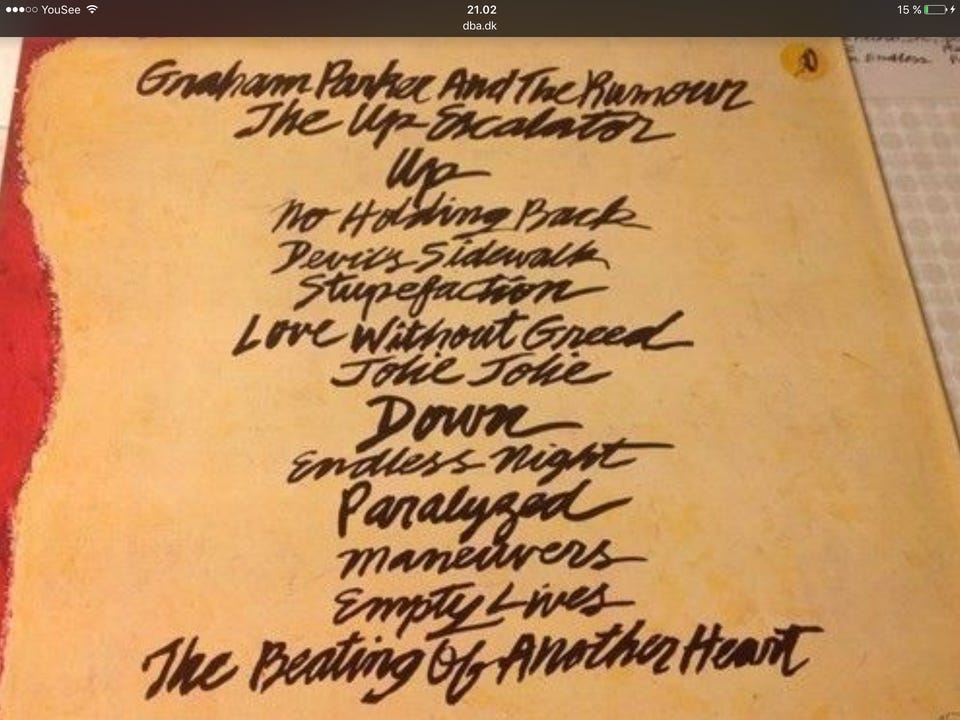 YouSee
21.02
15 %
dba.dk
Graham Parker And The Rumour
The Up Escalator
Up
No Holding Back
Devil's Sidewalk
Stupefaction
Love Without Greed
Jolie Jolie
Down
Endless Night
Paralyzed
Maneuvers
Empty Lives
The Beating Of Another Heart
Endless